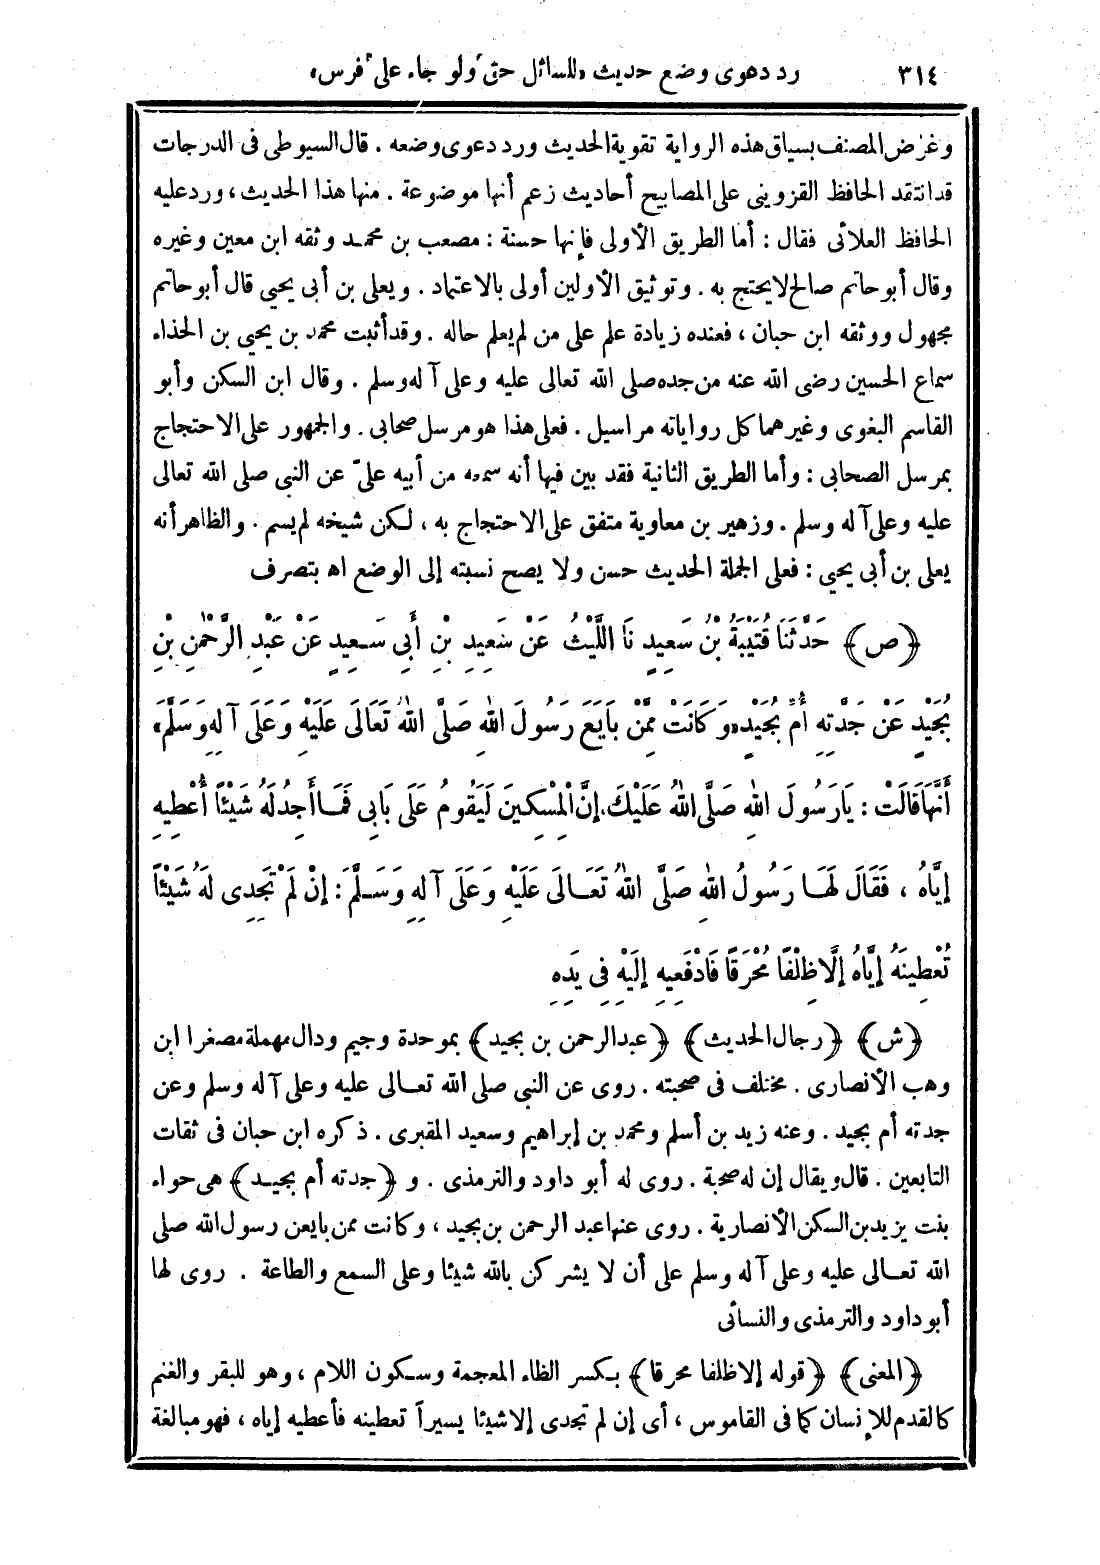 ٣١٤ رد دعوى وضع حديث «للسائل حق ولو جاء على فرس»
وغرض المصنف بسياق هذه الرواية تقوية الحديث ورد دعوى وضعه . قال السيوطى فى الدرجات
قد انتقد الحافظ القزوينى على المصابيح أحاديث زعم أنها موضوعة . منها هذا الحديث ، ورد عليه
الحافظ العلائى فقال : أما الطريق الأولى فإنها حسنة : مصعب بن محمد وثقه ابن معين وغيره
وقال أبو حاتم صالح لا يحتج به . وتوثيق الأولين أولى بالاعتماد . ويعلى بن أبى يحيي قال أبو حاتم
مجهول ووثقه ابن حبان ، فعنده زيادة علم على من لم يعلم حاله . وقد أثبت محمد بن يحيي بن الحذاء
سماع الحسين رضى الله عنه من جده صلى الله تعالى عليه وعلى آله وسلم . وقال ابن السكن وأبو
القاسم البغوى وغيرهما كل رواياته مراسيل . فعلى هذا هو مرسل صحابى . والجمهور على الاحتجاج
بمرسل الصحابى : وأما الطريق الثانية فقد بين فيها أنه سمعه من أبيه علىّ عن النبى صلى الله تعالى
عليه وعلى آله وسلم . وزهير بن معاوية متفق على الاحتجاج به ، لكن شيخه لم يسم . والظاهر أنه
يعلى بن أبى يحيي : فعلى الجملة الحديث حسن ولا يصح نسبته إلى الوضع اه بتصرف
﴿ص﴾ حَدَّثَنَا قُتَيْبَةُ بْنُ سَعِيدٍ نَا اللَّيْثُ عَنْ سَعِيدِ بْنِ أَبِي سَعِيدٍ عَنْ عَبْدِ الرَّحْمٰنِ بْنِ
بُجَيْدٍ عَنْ جَدَّتِهِ أُمِّ بُجَيْدٍ «وَكَانَتْ مِمَّنْ بَايَعَ رَسُولَ اللهِ صَلَّى اللهُ تَعَالَى عَلَيْهِ وَعَلَى آلِهِ وَسَلَّمَ»
أَنَّهَا قَالَتْ : يَارَسُولَ اللهِ صَلَّى اللهُ عَلَيْكَ، إِنَّ الْمِسْكِينَ لَيَقُومُ عَلَى بَابِى فَمَا أَجِدُ لَهُ شَيْئًا أُعْطِيهِ
إِيَّاهُ ، فَقَالَ لَهَا رَسُولُ اللهِ صَلَّى اللهُ تَعَالَى عَلَيْهِ وَعَلَى آلِهِ وَسَلَّمَ : إِنْ لَمْ تَجِدِى لَهُ شَيْئًا
تُعْطِينَهُ إِيَّاهُ إِلَّا ظِلْفًا مُحْرَقًا فَادْفَعِيهِ إِلَيْهِ فِى يَدِهِ
﴿ش﴾ ﴿رجال الحديث﴾ ﴿عبدالرحمن بن بجيد﴾ بموحدة وجيم ودال مهملة مصغرا ابن
وهب الأنصارى . مختلف فى صحبته . روى عن النبى صلى الله تعالى عليه وعلى آله وسلم وعن
جدته أم بجيد . وعنه زيد بن أسلم ومحمد بن إبراهيم وسعيد المقبرى . ذكره ابن حبان فى ثقات
التابعين . قال ويقال إن له صحبة . روى له أبو داود والترمذى . و ﴿جدته أم بجيد﴾ هى حواء
بنت يزيد بن السكن الأنصارية . روى عنها عبد الرحمن بن بجيد ، وكانت ممن بايعن رسول الله صلى
الله تعالى عليه وعلى آله وسلم على أن لا يشركن بالله شيئا وعلى السمع والطاعة . روى لها
أبو داود والترمذى والنسائى
﴿المعنى﴾ ﴿قوله إلا ظلفا محرقا﴾ بكسر الظاء المعجمة وسكون اللام ، وهو للبقر والغنم
كالقدم للإنسان كما فى القاموس ، أى إن لم تجدى إلا شيئا يسيراً تعطينه فأعطيه إياه ، فهو مبالغة